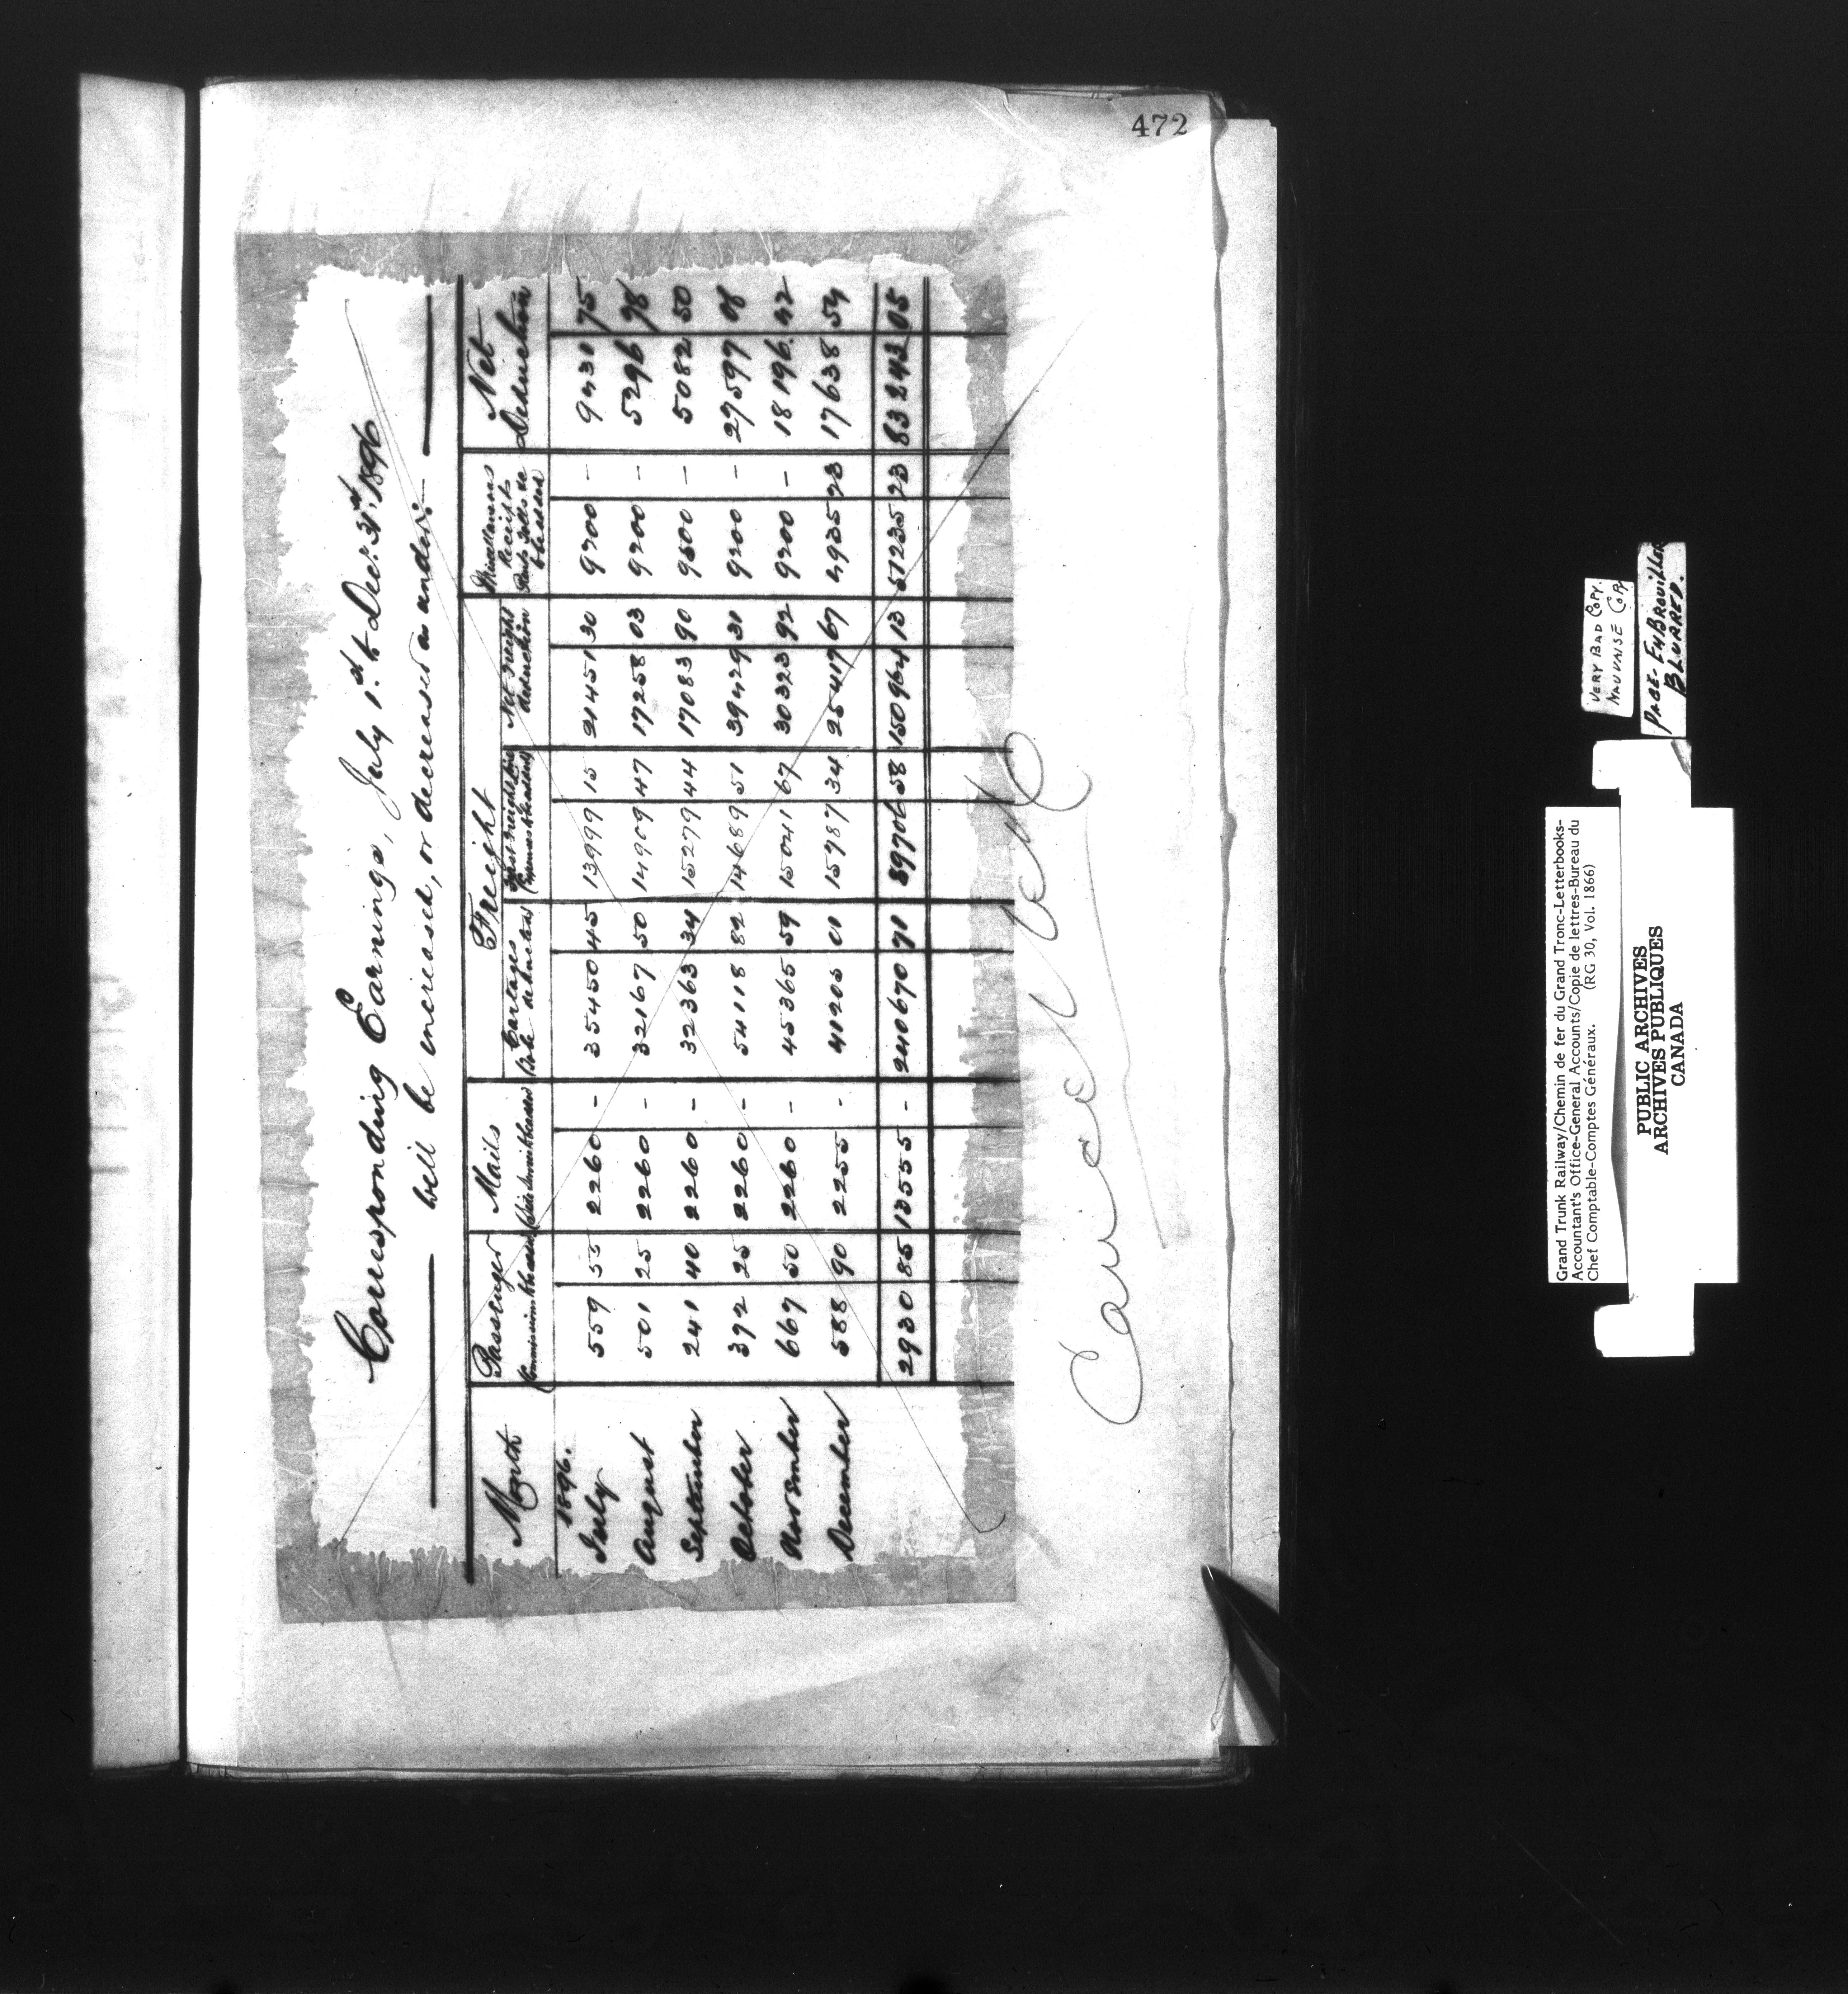 472
Corresponding Earnings, July 1st to Dec. 31st 1896
will be increased, or decreased as under:-
Month
Passenger
(Commissions to be added)
Mails
Freight
Cartages
(to be deducted)
Fast Freight Line
(Expenses to be added)
Net Freight
deduction
Miscellaneous
Receipts
Rents Tolls &c
to be added
Net
Deduction
1896.
July 559 55 2260 - 35450 45 13999 15 21451 30 9200 - 9431 75
August 501 25 2260 - 32167 50 14909 47 17258 03 9200 - 5296 78
September 241 40 2260 - 32363 34 15279 44 17083 90 9500 - 5082 50
October 372 25 2260 - 54118 82 14689 51 39429 31 9200 - 27597 06
November 667 50 2260 - 45365 59 15041 67 30323 92 9200 - 18196 42
December 588 90 2255 - 41205 01 15787 34 25417 67 4935 23 17638 54
2930 85 13555 - 240670 71 89706 58 150964 13 51235 23 83243 05
Cancelled
VERY BAD COPY.
MAUVAISE COPY
PAGE- EMBROUILLÉE
BLURRED.
Grand Trunk Railway/Chemin de fer du Grand Tronc-Letterbooks-
Accountant's Office-General Accounts/Copie de lettres-Bureau du
Chef Comptable-Comptes Généraux. (RG 30, Vol. 1866)
PUBLIC ARCHIVES
ARCHIVES PUBLIQUES
CANADA